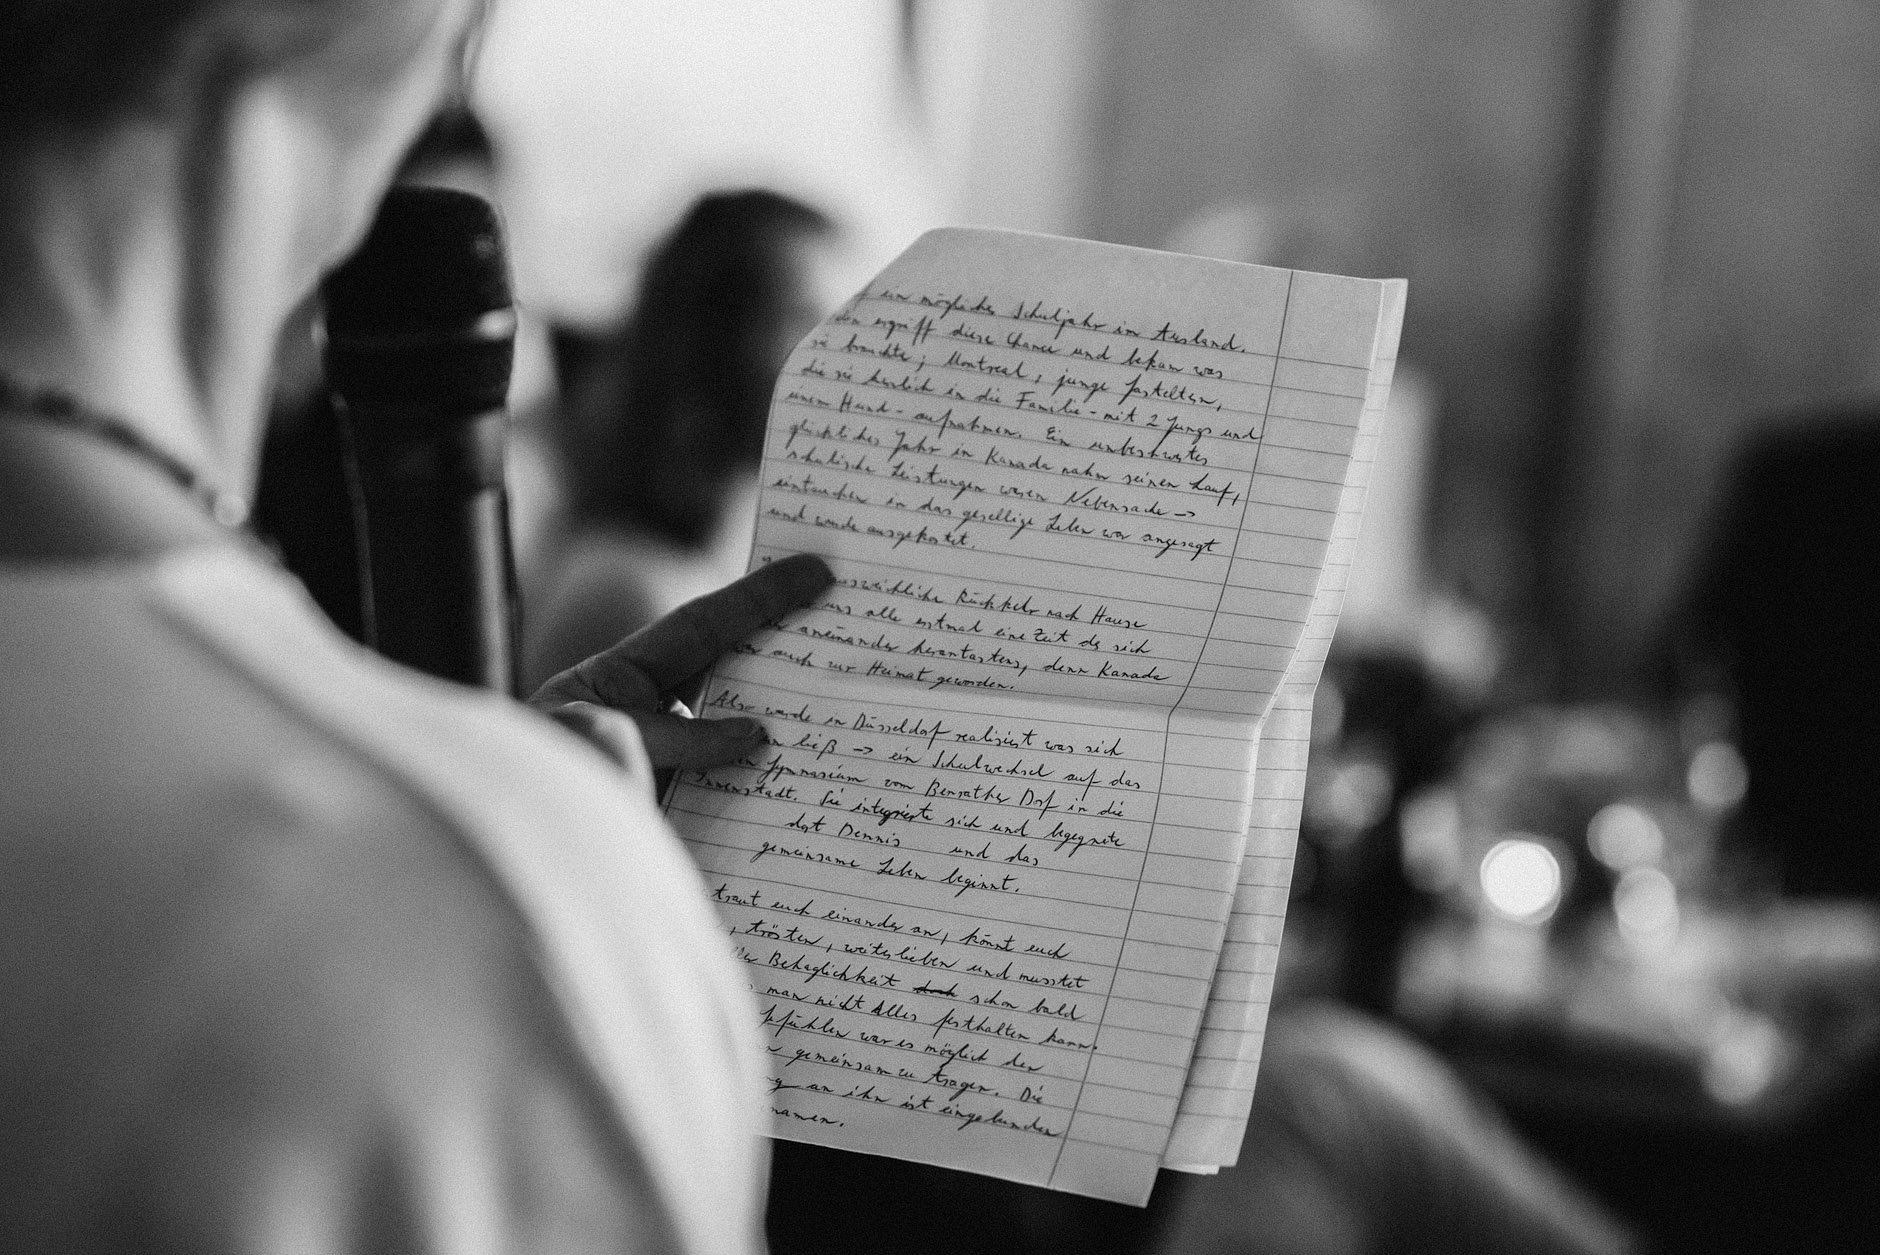 ein mögliches Schuljahr im Ausland.
ergriff diese Chance und bekam was
sie brauchte; Montreal, junge Gasteltern,
die sie herzlich in die Familie - mit 2 Jungs und
einem Hund - aufnahmen. Ein unbeschwertes
glückliches Jahr in Kanada nahm seinen Lauf,
schulische Leistungen waren Nebensache →
eintauchen in das gesellige Leben war angesagt
und wurde ausgekostet.
Rückkehr nach Hause
uns alle erstmal eine Zeit des sich
aneinander herantastens, denn Kanada
war auch zur Heimat geworden.
Also wurde in Düsseldorf realisiert was sich
ließ → ein Schulwechsel auf das
Gymnasium vom Benrather Dorf in die
Innenstadt. Sie integrierte sich und begegnete
dort Dennis und das
gemeinsame Leben beginnt.
traut euch einander an, könnt euch
, trösten, weiterlieben und musstet
Behaglichkeit schon bald
man nicht Alles festhalten kann.
war es möglich den
gemeinsam zu tragen. Die
an ihn ist eingebunden